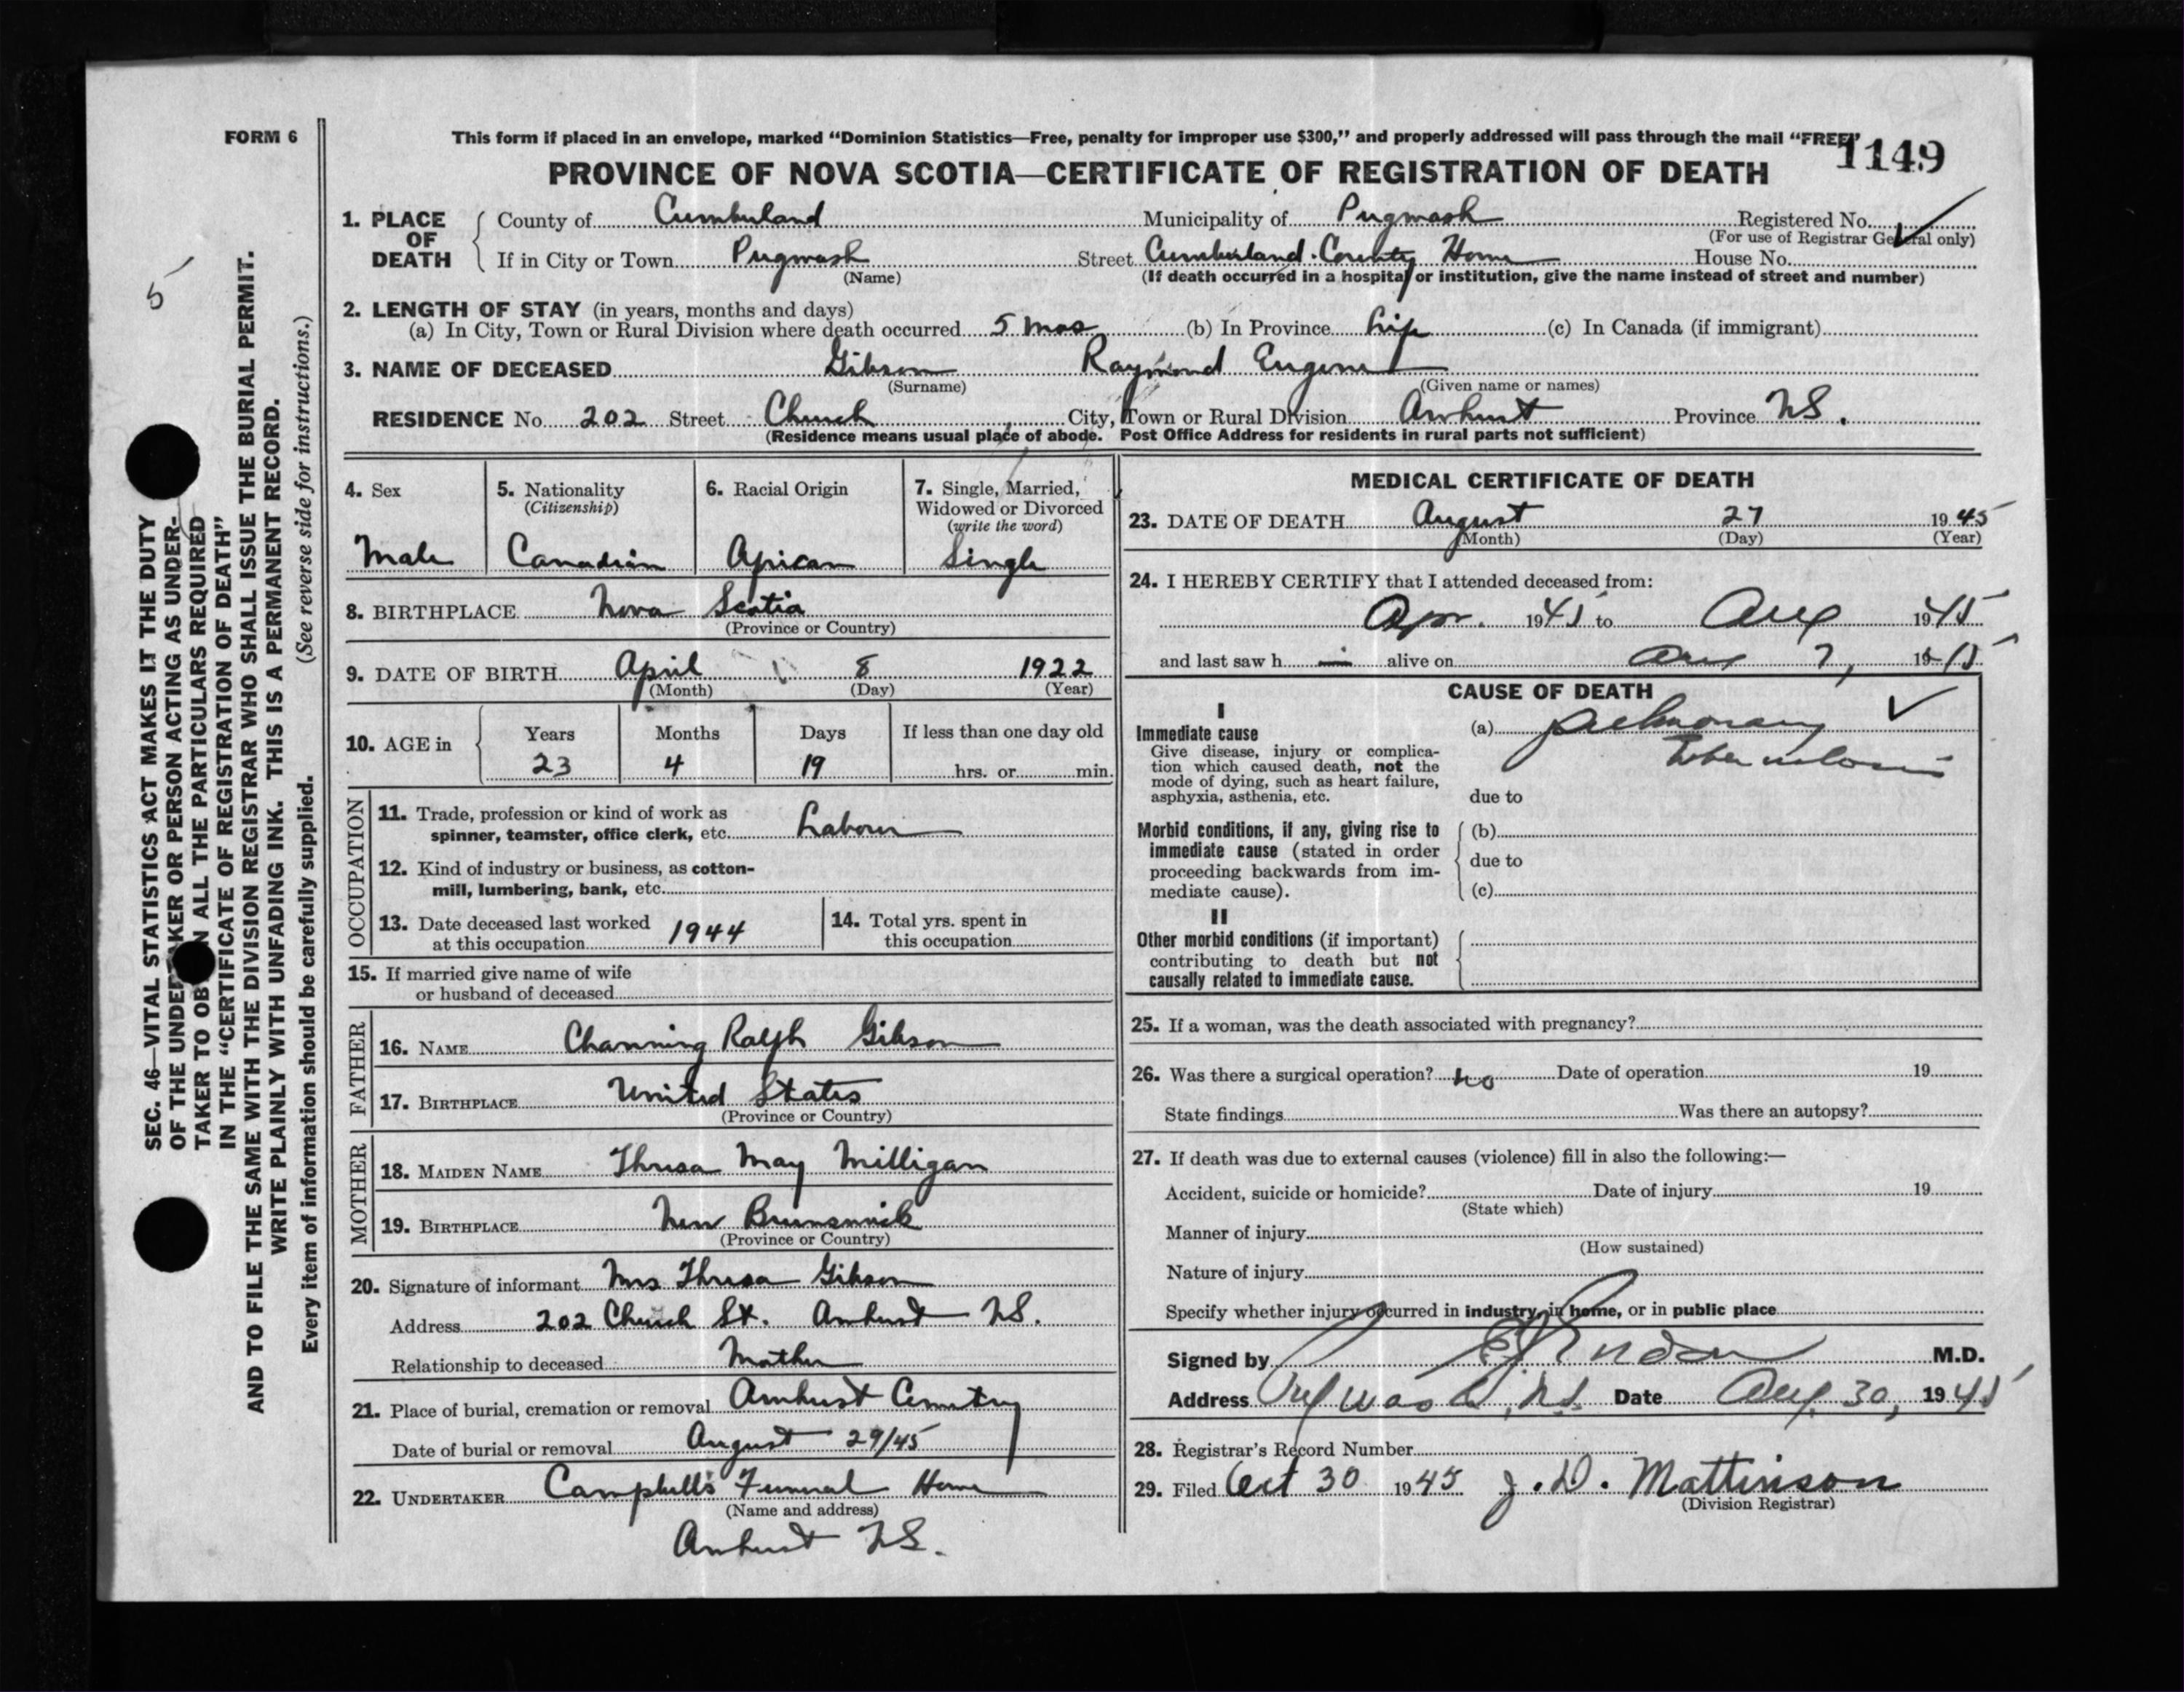 FORM 6
This form if placed in an envelope, marked “Dominion Statistics—Free, penalty for improper use $300,” and properly addressed will pass through the mail “FREE”
1149
PROVINCE OF NOVA SCOTIA—CERTIFICATE OF REGISTRATION OF DEATH
1. PLACE OF DEATH { County of Cumberland Municipality of Pugwash Registered No.
(For use of Registrar General only)
If in City or Town Pugwash Street Cumberland County Home House No.
(Name) (If death occurred in a hospital or institution, give the name instead of street and number)
2. LENGTH OF STAY (in years, months and days)
(a) In City, Town or Rural Division where death occurred 5 mos (b) In Province Life (c) In Canada (if immigrant)
3. NAME OF DECEASED Gibson Raymond Eugene
(Surname) (Given name or names)
RESIDENCE No. 202 Street Church City, Town or Rural Division Amherst Province N.S.
(Residence means usual place of abode. Post Office Address for residents in rural parts not sufficient)
4. Sex
Male
5. Nationality
(Citizenship)
Canadian
6. Racial Origin
African
7. Single, Married,
Widowed or Divorced
(write the word)
Single
8. BIRTHPLACE Nova Scotia
(Province or Country)
9. DATE OF BIRTH April 8 1922
(Month) (Day) (Year)
10. AGE in { Years Months Days If less than one day old
23 4 19 hrs. or min.
OCCUPATION
11. Trade, profession or kind of work as
spinner, teamster, office clerk, etc. Labour
12. Kind of industry or business, as cotton-
mill, lumbering, bank, etc.
13. Date deceased last worked
at this occupation 1944
14. Total yrs. spent in
this occupation
15. If married give name of wife
or husband of deceased
FATHER
16. NAME Channing Ralph Gibson
17. BIRTHPLACE United States
(Province or Country)
MOTHER
18. MAIDEN NAME Thresa May Milligan
19. BIRTHPLACE New Brunswick
(Province or Country)
20. Signature of informant Mrs Thresa Gibson
Address 202 Church St. Amherst N.S.
Relationship to deceased Mother
21. Place of burial, cremation or removal Amherst Cemetry
Date of burial or removal August 29/45
22. UNDERTAKER Campbell's Funeral Home
(Name and address)
Amherst N.S.
MEDICAL CERTIFICATE OF DEATH
23. DATE OF DEATH August 27 1945
(Month) (Day) (Year)
24. I HEREBY CERTIFY that I attended deceased from:
Apr. 1945 to Aug 1945
and last saw h im alive on Aug 7, 1945
CAUSE OF DEATH
I
Immediate cause
Give disease, injury or complica-
tion which caused death, not the
mode of dying, such as heart failure,
asphyxia, asthenia, etc.
(a) pulmonary
tuberculosis
due to
Morbid conditions, if any, giving rise to
immediate cause (stated in order
proceeding backwards from im-
mediate cause).
(b)
due to
(c)
II
Other morbid conditions (if important)
contributing to death but not
causally related to immediate cause.
25. If a woman, was the death associated with pregnancy?
26. Was there a surgical operation? no Date of operation 19
State findings Was there an autopsy?
27. If death was due to external causes (violence) fill in also the following:—
Accident, suicide or homicide? Date of injury 19
(State which)
Manner of injury
(How sustained)
Nature of injury
Specify whether injury occurred in industry, in home, or in public place
Signed by M.D.
Address Pugwash, N.S. Date Aug. 30, 1945
28. Registrar's Record Number
29. Filed Oct 30 1945 J. D. Mattinson
(Division Registrar)
5
SEC. 46—VITAL STATISTICS ACT MAKES IT THE DUTY
OF THE UNDERTAKER OR PERSON ACTING AS UNDER-
TAKER TO OBTAIN ALL THE PARTICULARS REQUIRED
IN THE “CERTIFICATE OF REGISTRATION OF DEATH”
AND TO FILE THE SAME WITH THE DIVISION REGISTRAR WHO SHALL ISSUE THE BURIAL PERMIT.
WRITE PLAINLY WITH UNFADING INK. THIS IS A PERMANENT RECORD.
Every item of information should be carefully supplied. (See reverse side for instructions.)